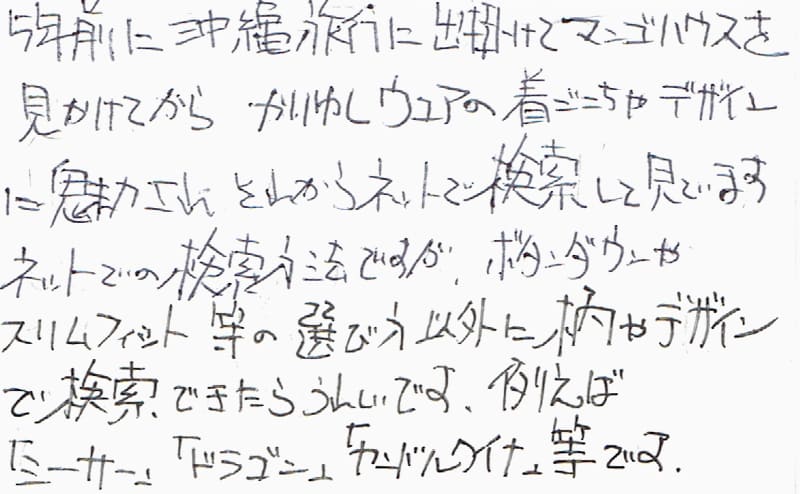 5年前に沖縄旅行に出掛けてマンゴハウスを
見かけてから かりゆしウェアの着ごこちやデザイン
に魅力され それからネットで検索して見ています
ネットでの検索方法ですが、ボタンダウンや
スリムフィット等の選び方以外に柄やデザイン
で検索できたらうれしいです、例えば
「ミーサー」「ドラゴン」「カンドルクイナ」等です.